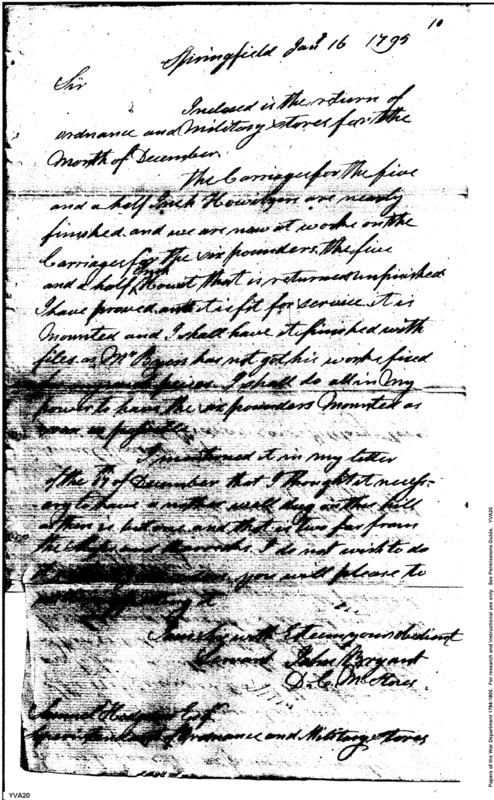 10
Springfield Jany 16 1795
Sir
Inclosed is the return of
ordnance and Military stores for the
Month of December
The Carriages for the five
and a half Inch Howitzers are nearly
finished and we are now at worke on the
Carriages for the six pounders. the five
and a half Inch Howit that is returned unfinished
I have proved and it is fit for service it is
Mounted and I shall have it finished with
files as Mr Byers has not got his worke fixed
I shall do all in My
power to have the six pounders Mounted as
soon as possible
I mentioned it in my letter
of the of December that I thought it necess-
ary to have a nother well dug on this hill
as there is but one and that is two far from
the shops and I do not wish to do
it you will please to
it
I am Sir with Esteem your obediant
Servant John Bryant
D. C. M Stores
Samuel Hodgdon Esqr
of Ordnance and Military Stores
Papers of the War Department 1784-1800. For research and instructional use only. See Permissions Guide. YVA20
YVA20